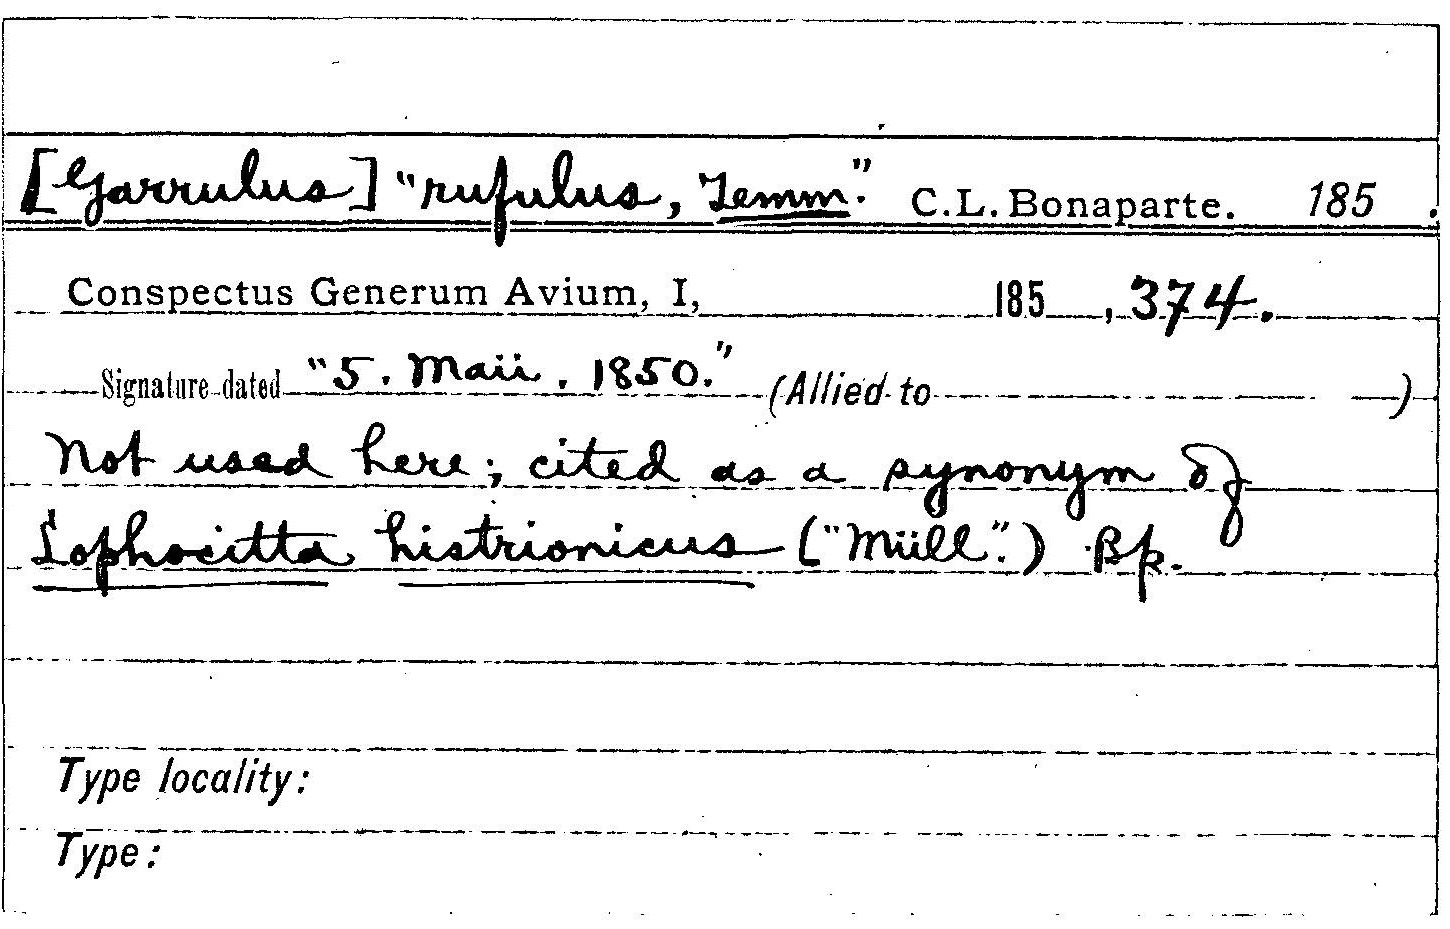 [Garrulus] "rufulus, Temm." C.L. Bonaparte. 185 .
Conspectus Generum Avium, I, 185 , 374.
Signature dated "5. Maii. 1850." (Allied to )
Not used here; cited as a synonym of
Lophocitta histrionicus ("Müll.") Bp.
Type locality:
Type: